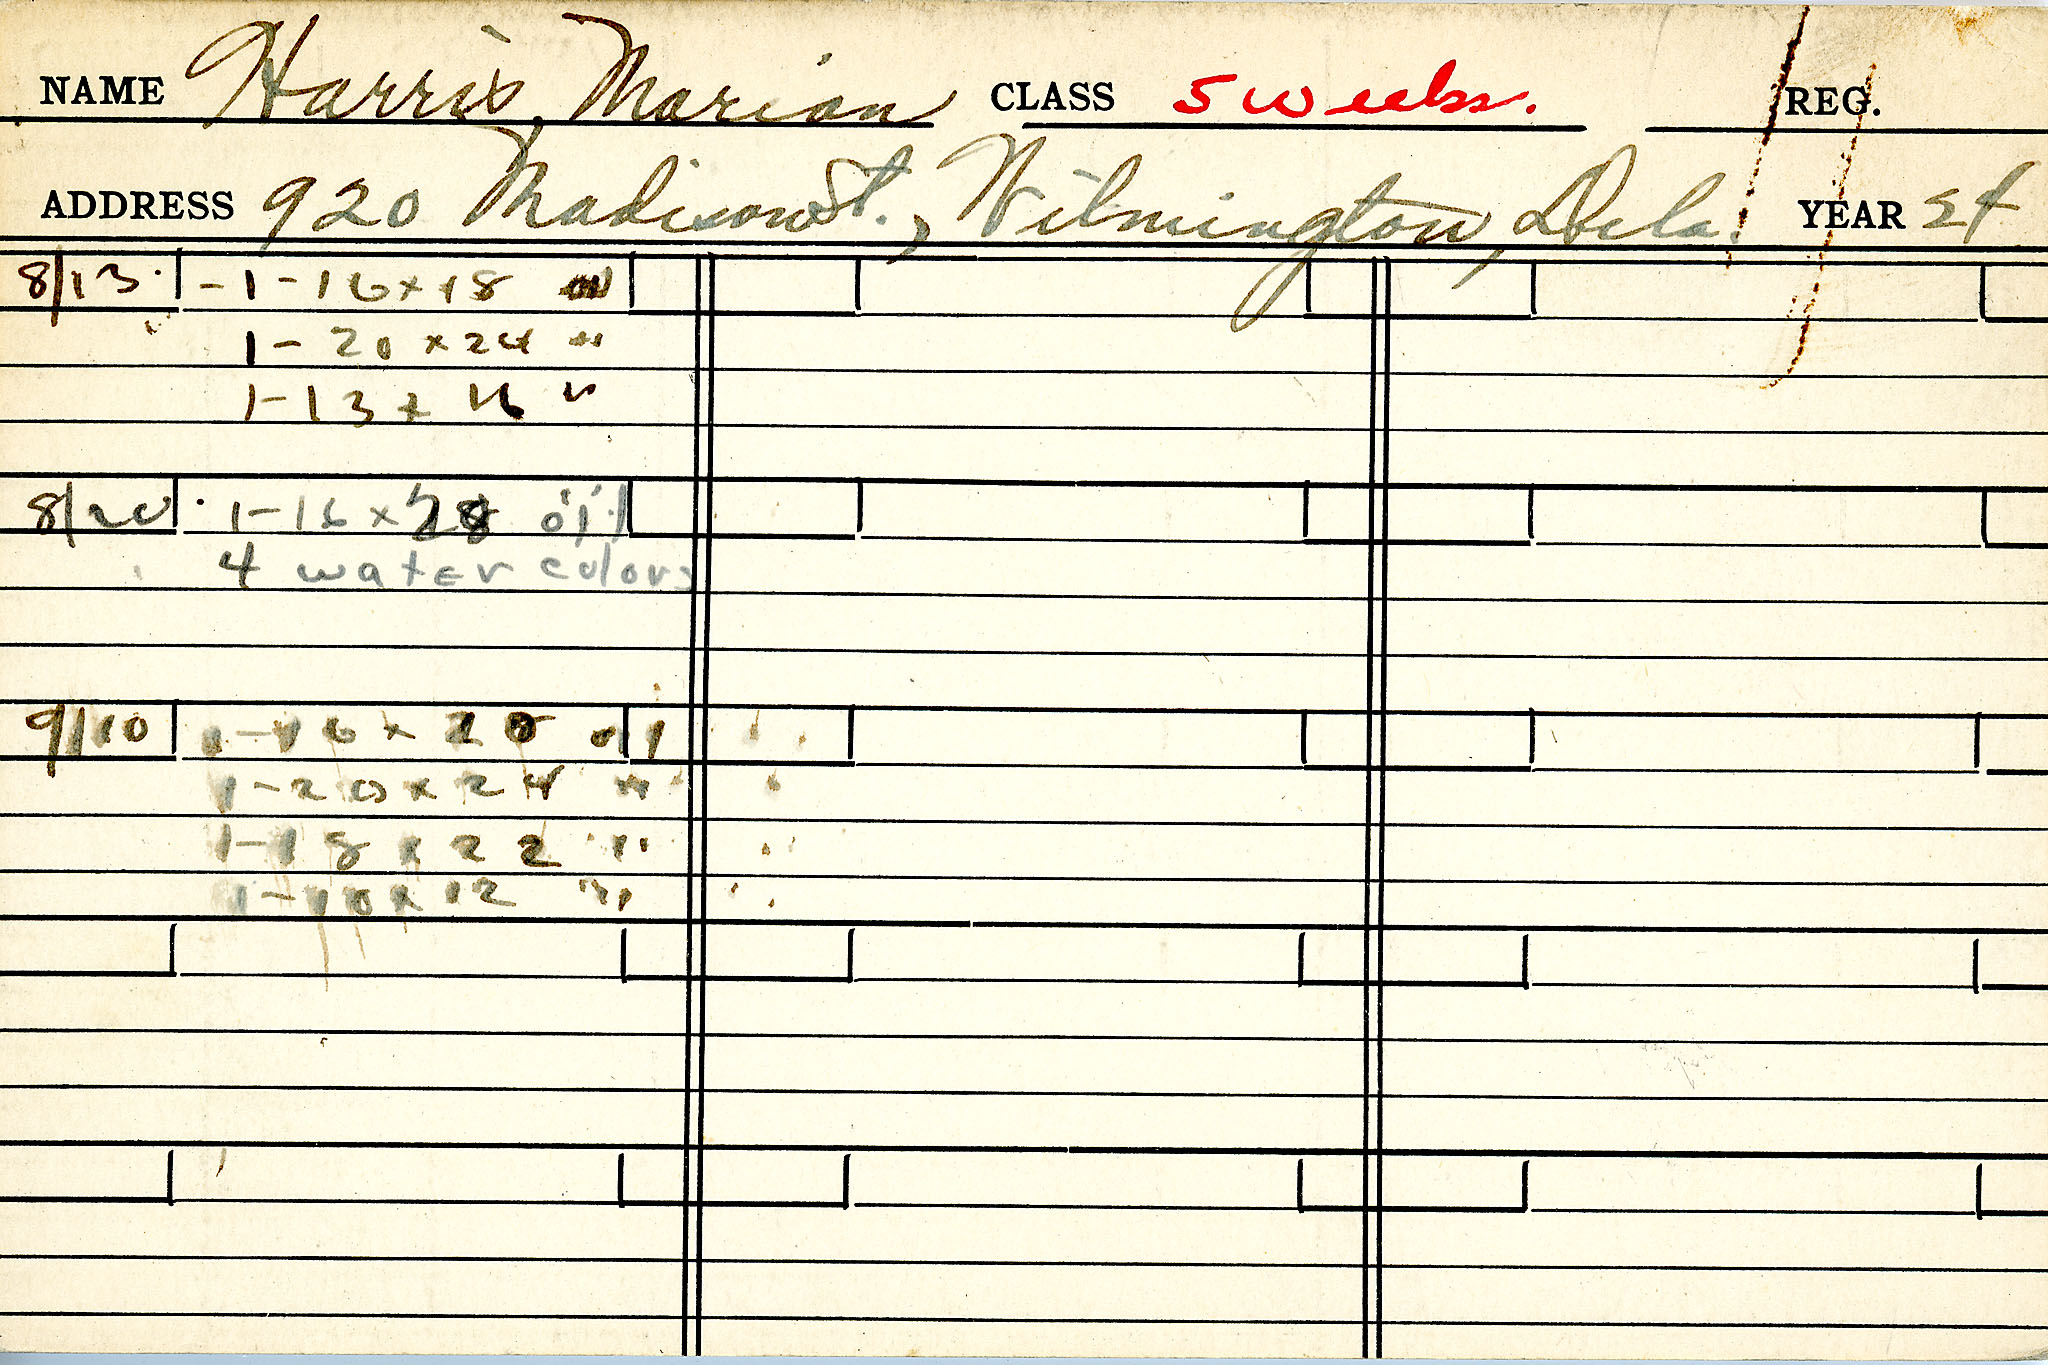 NAME Harris, Marion CLASS 5 weeks. REG.
ADDRESS 920 Madison St., Wilmington, Dela. YEAR
8/13 - 1 - 16 x 18 oil
1 - 20 x 24 "
1 - 13 x 16 "
8/20 1 - 16 x oil
4 water colors
9/10 1 - 16 x 20 oil
1 - 20 x 24 "
1 - 18 x 22 "
1 - 10 x 12 "